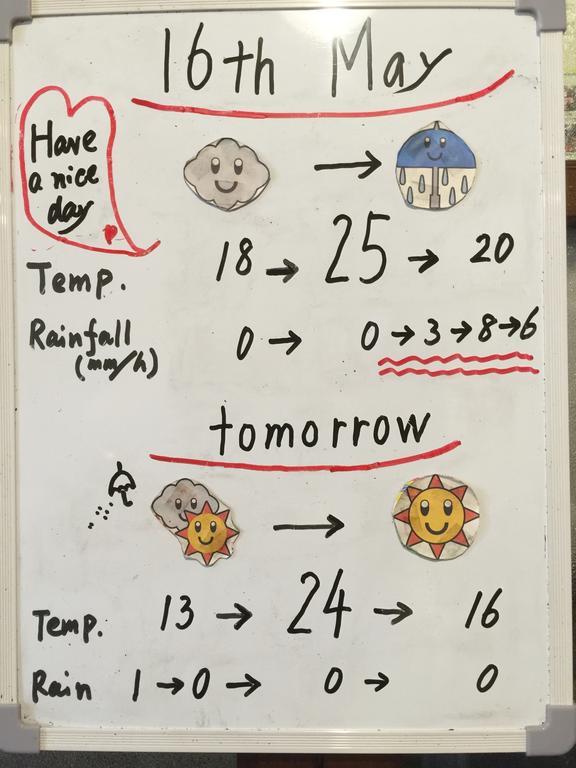 16th May
Have
a nice
day
Temp. 18 → 25 → 20
Rainfall 0 → 0 → 3 → 8 → 6
(mm/h)
tomorrow
Temp. 13 → 24 → 16
Rain 1 → 0 → 0 → 0